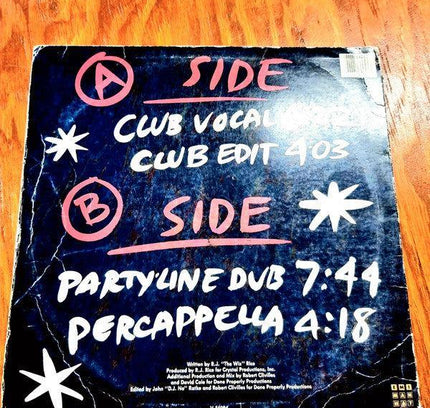 A SIDE
CLUB VOCAL
CLUB EDIT 4:03
B SIDE
PARTY-LINE DUB 7:44
PERCAPPELLA 4:18
Written by R.J. "The Wiz" Rice
Produced by R.J. Rice for Crystal Productions, Inc.
Additional Production and Mix by Robert Clivilles
and David Cole for Done Properly Productions
Edited by John "D.J. No" Rafke and Robert Clivilles for Done Properly Productions
EMI
MAN
HAT